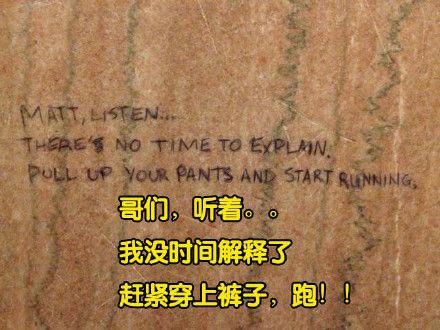 MATT, LISTEN...
THERE'S NO TIME TO EXPLAIN.
PULL UP YOUR PANTS AND START RUNNING.
哥们，听着。。
我没时间解释了
赶紧穿上裤子，跑！！